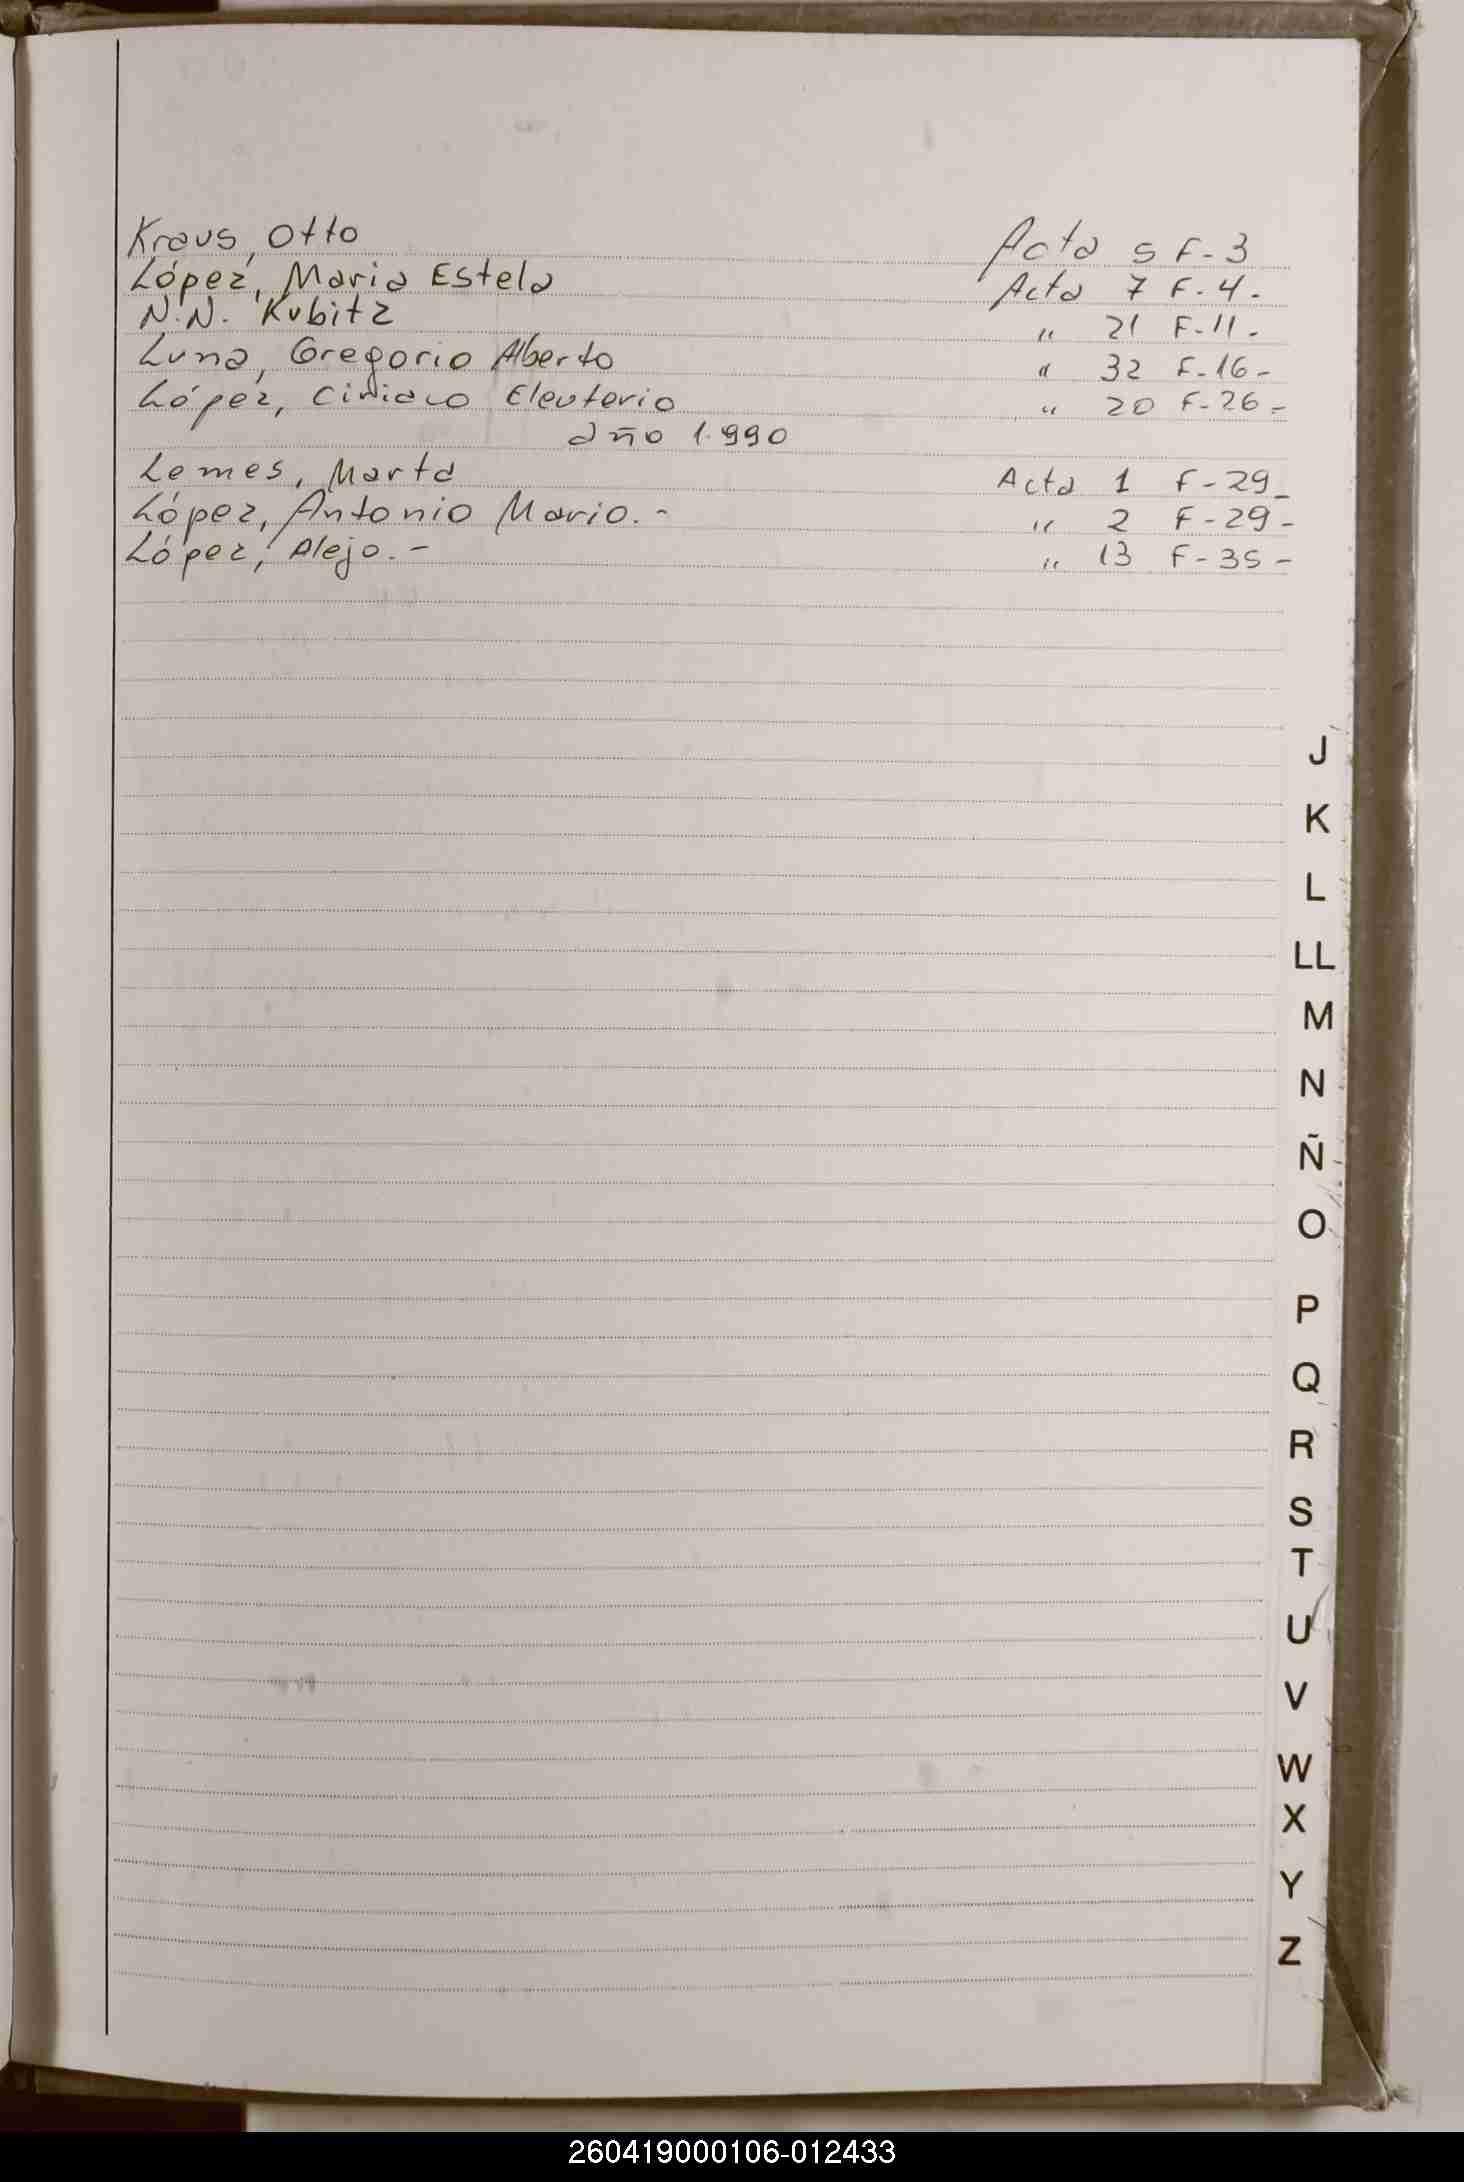 Kraus, Otto Acta 5 F-3
López, Maria Estela Acta 7 F-4.
N.N. Kubitz " 21 F-11.
Luna, Gregorio Alberto " 32 F-16-
López, Ciriaco Eleuterio " 20 F-26-
año 1.990
Lemes, Marta Acta 1 F-29-
López, Antonio Mario.- " 2 F-29-
López, Alejo.- " 13 F-35-
J
K
L
LL
M
N
Ñ
O
P
Q
R
S
T
U
V
W
X
Y
Z
260419000106-012433